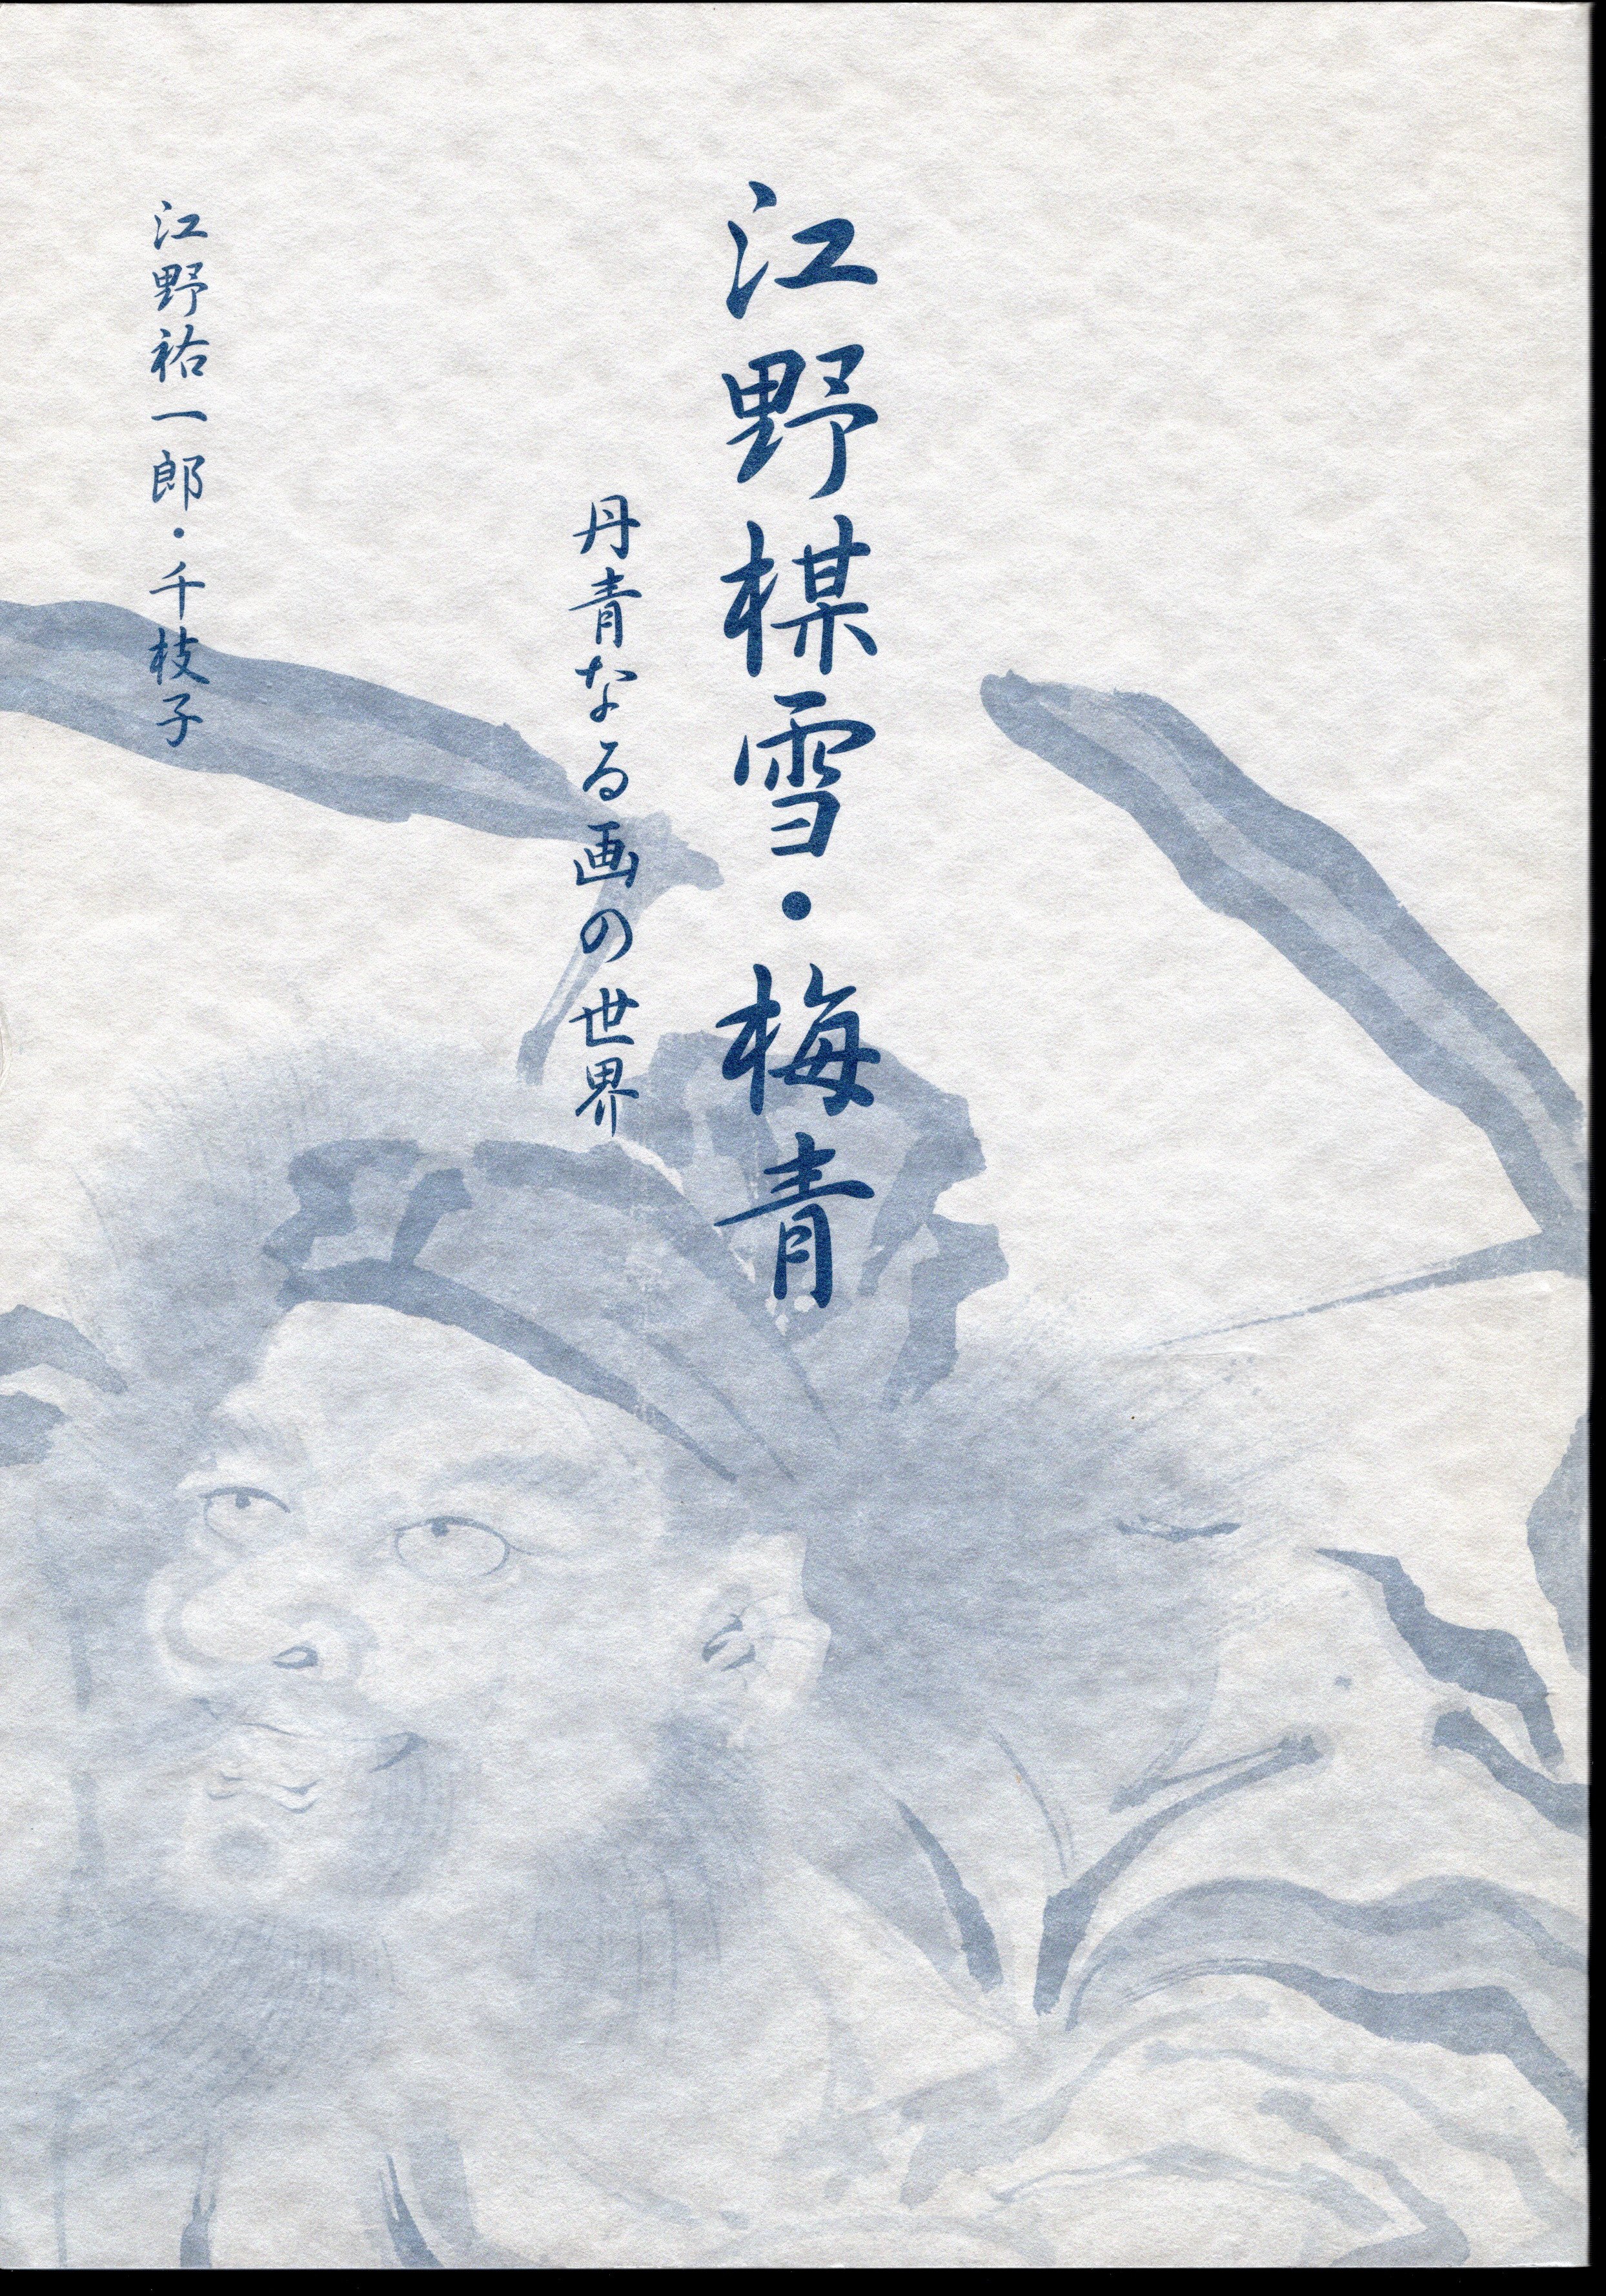 江野楳雪・梅青
丹青なる画の世界
江野祐一郎・千枝子